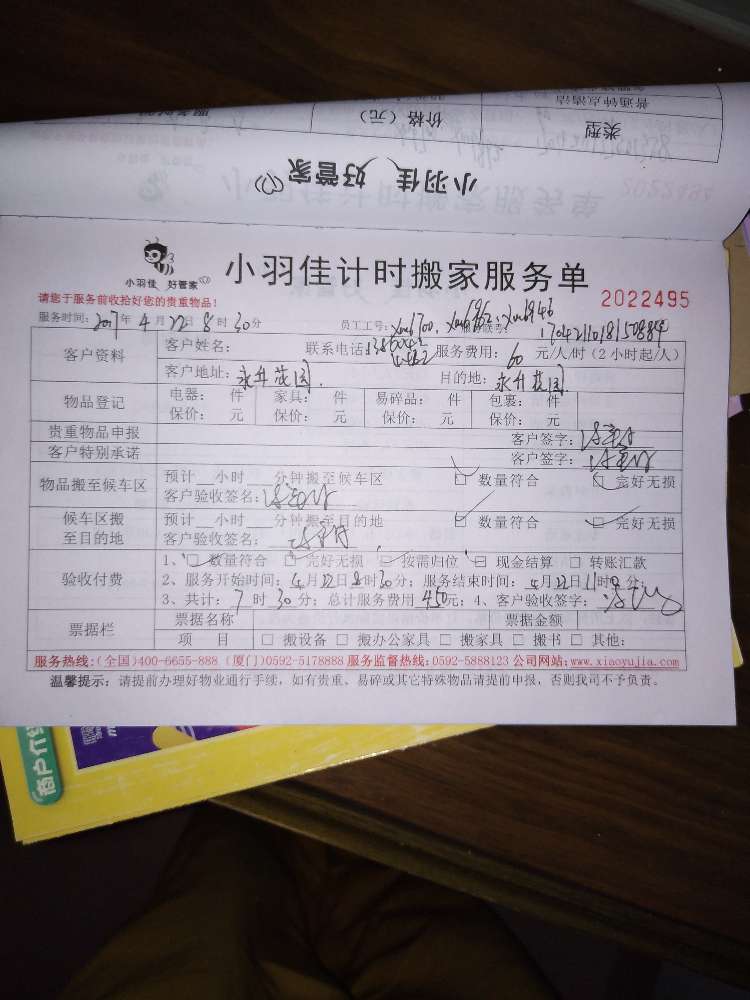 普通钟点清洁
类型
价格（元）
小羽佳 好管家
小羽佳 好管家
小羽佳计时搬家服务单
2022495
请您于服务前收拾好您的贵重物品！
服务时间：2017年4月22日8时30分 员工工号：
客户资料
客户姓名： 联系电话： 服务费用：60元/人/时（2小时起/人）
客户地址：永升茂园 目的地：永升茂园
物品登记
电器： 件 家具： 件 易碎品： 件 包裹： 件
保价： 元 保价： 元 保价： 元 保价： 元
贵重物品申报 客户签字：
客户特别承诺 客户签字：
物品搬至候车区
预计__小时__分钟搬至候车区 □ 数量符合 □ 完好无损
客户验收签名：
候车区搬
至目的地
预计__小时__分钟搬至目的地 □ 数量符合 □ 完好无损
客户验收签名：
验收付费
1、□ 数量符合 □ 完好无损 □ 按需归位 □ 现金结算 □ 转账汇款
2、服务开始时间：4月22日8时30分；服务结束时间：4月22日11时0分；
3、共计：7时30分；总计服务费用450元；4、客户验收签字：
票据栏
票据名称 票据金额
项 目 □ 搬设备 □ 搬办公家具 □ 搬家具 □ 搬书 □ 其他：
服务热线：（全国）400-6655-888（厦门）0592-5178888 服务监督热线：0592-5888123 公司网站：www.xiaoyujia.com
温馨提示：请提前办理好物业通行手续，如有贵重、易碎或其它特殊物品请提前申报，否则我司不予负责。